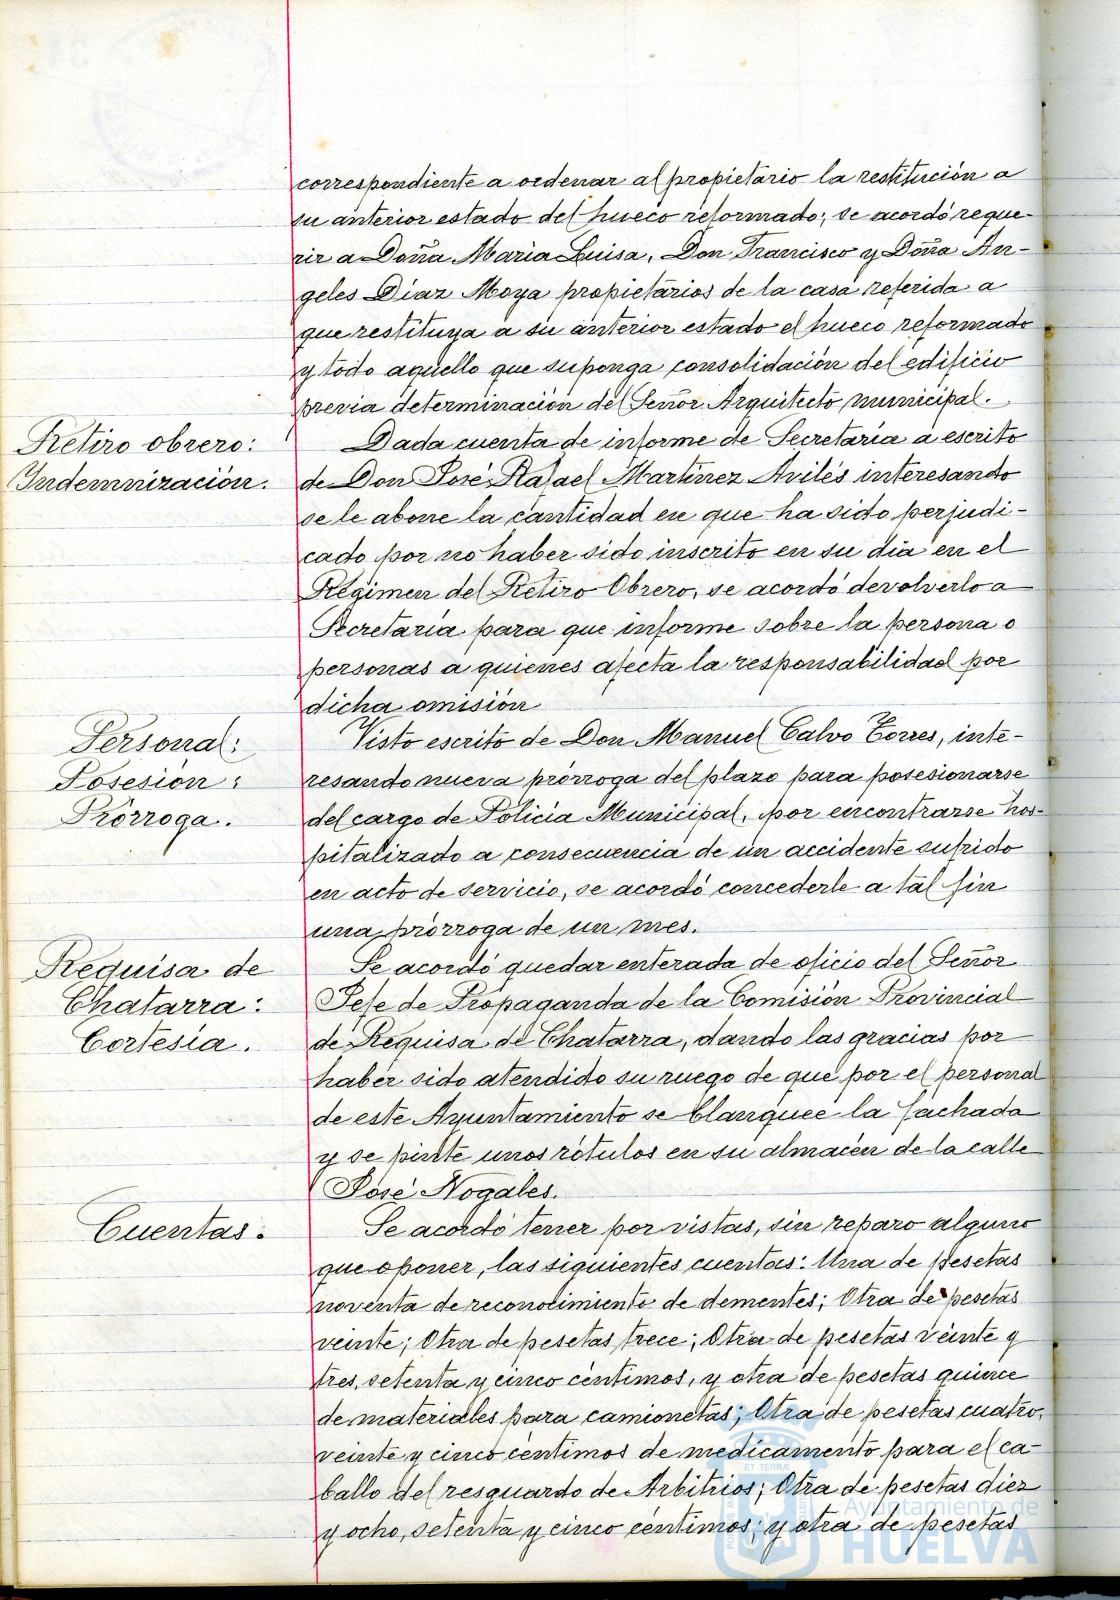 correspondiente a ordenar al propietario la restitución a
su anterior estado del hueco reformado; se acordó reque-
rir a Doña Maria Luisa, Don Francisco y Doña An-
geles Díaz Moya propietarios de la casa referida a
que restituya a su anterior estado el hueco reformado
y todo aquello que suponga consolidación del edificio
previa determinación del Señor Arquitecto municipal.
Retiro obrero:
Indemnización.
Dada cuenta de informe de Secretaría a escrito
de Don José Rafael Martínez Avilés interesando
se le abone la cantidad en que ha sido perjudi-
cado por no haber sido inscrito en su día en el
Régimen del Retiro Obrero, se acordó devolverlo a
Secretaría para que informe sobre la persona o
personas a quienes afecta la responsabilidad por
dicha omisión
Personal:
Posesión:
Prórroga.
Visto escrito de Don Manuel Calvo Torres, inte-
resando nueva prórroga del plazo para posesionarse
del cargo de Policía Municipal, por encontrarse hos-
pitalizado a consecuencia de un accidente sufrido
en acto de servicio, se acordó concederle a tal fin
una prórroga de un mes.
Requisa de
Chatarra:
Cortesía.
Se acordó quedar enterada de oficio del Señor
Jefe de Propaganda de la Comisión Provincial
de Requisa de Chatarra, dando las gracias por
haber sido atendido su ruego de que por el personal
de este Ayuntamiento se blanquee la fachada
y se pinte unos rótulos en su almacén de la calle
José Nogales.
Cuentas.
Se acordó tener por vistas, sin reparo alguno
que oponer, las siguientes cuentas: Una de pesetas
noventa de reconocimiento de dementes; Otra de pesetas
veinte; Otra de pesetas trece; Otra de pesetas veinte y
tres, setenta y cinco céntimos, y otra de pesetas quince
de materiales para camionetas; Otra de pesetas cuatro,
veinte y cinco céntimos de medicamento para el ca-
ballo del resguardo de Arbitrios; Otra de pesetas diez
y ocho, setenta y cinco céntimos; y otra de pesetas
Ayuntamiento de
HUELVA